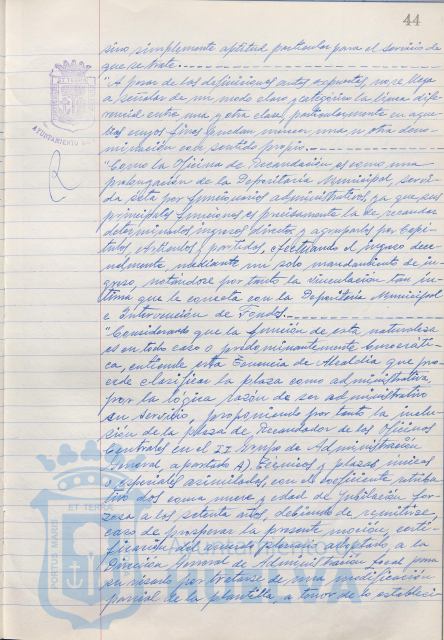 44
sino simplemente aptitud particular para el servicio de
que se trate.
"A pesar de las definiciones antes expuestas, no se llega
a señalar de un modo claro y categórico la línea dife-
rencial entre una y otra clase, particularmente en aque-
llas cuyos fines puedan merecer una u otra deno-
minación en sentido propio.
"Como la Oficina de Recaudación es como una
prolongación de la Depositaría Municipal, servi-
da ésta por funcionarios administrativos, ya que sus
principales funciones es precisamente la de recaudar
determinados ingresos directos y agruparlos por Capí-
tulos, Artículos y partidas, efectuando el ingreso dece-
nalmente, mediante un solo mandamiento de in-
greso, notándose por tanto la vinculación tan ín-
tima que la conecta con la Depositaría Municipal
e Intervención de Fondos.
"Considerando que la función de esta naturaleza
es en todo caso o predominantemente burocráti-
ca, entiende esta Tenencia de Alcaldía que pro-
cede clasificar la plaza como administrativa,
por la lógica razón de ser administrativo
su servicio, proponiendo por tanto la inclu-
sión de la plaza de Recaudador de las Oficinas
Centrales en el II Grupo de Administración
General, apartado A). Técnicos y plazas únicas
o especiales asimiladas, con el coeficiente retribu-
tivo dos coma nueve y edad de jubilación for-
zosa a los setenta años, debiendo de remitirse,
caso de prosperar la presente moción, certi-
ficación del acuerdo plenario adoptado, a la
Dirección General de Administración Local para
su visado por tratarse de una modificación
parcial de la plantilla, a tenor de lo estableci-
AYUNTAMIENTO DE
PORTUS MARIS ET TERRÆ